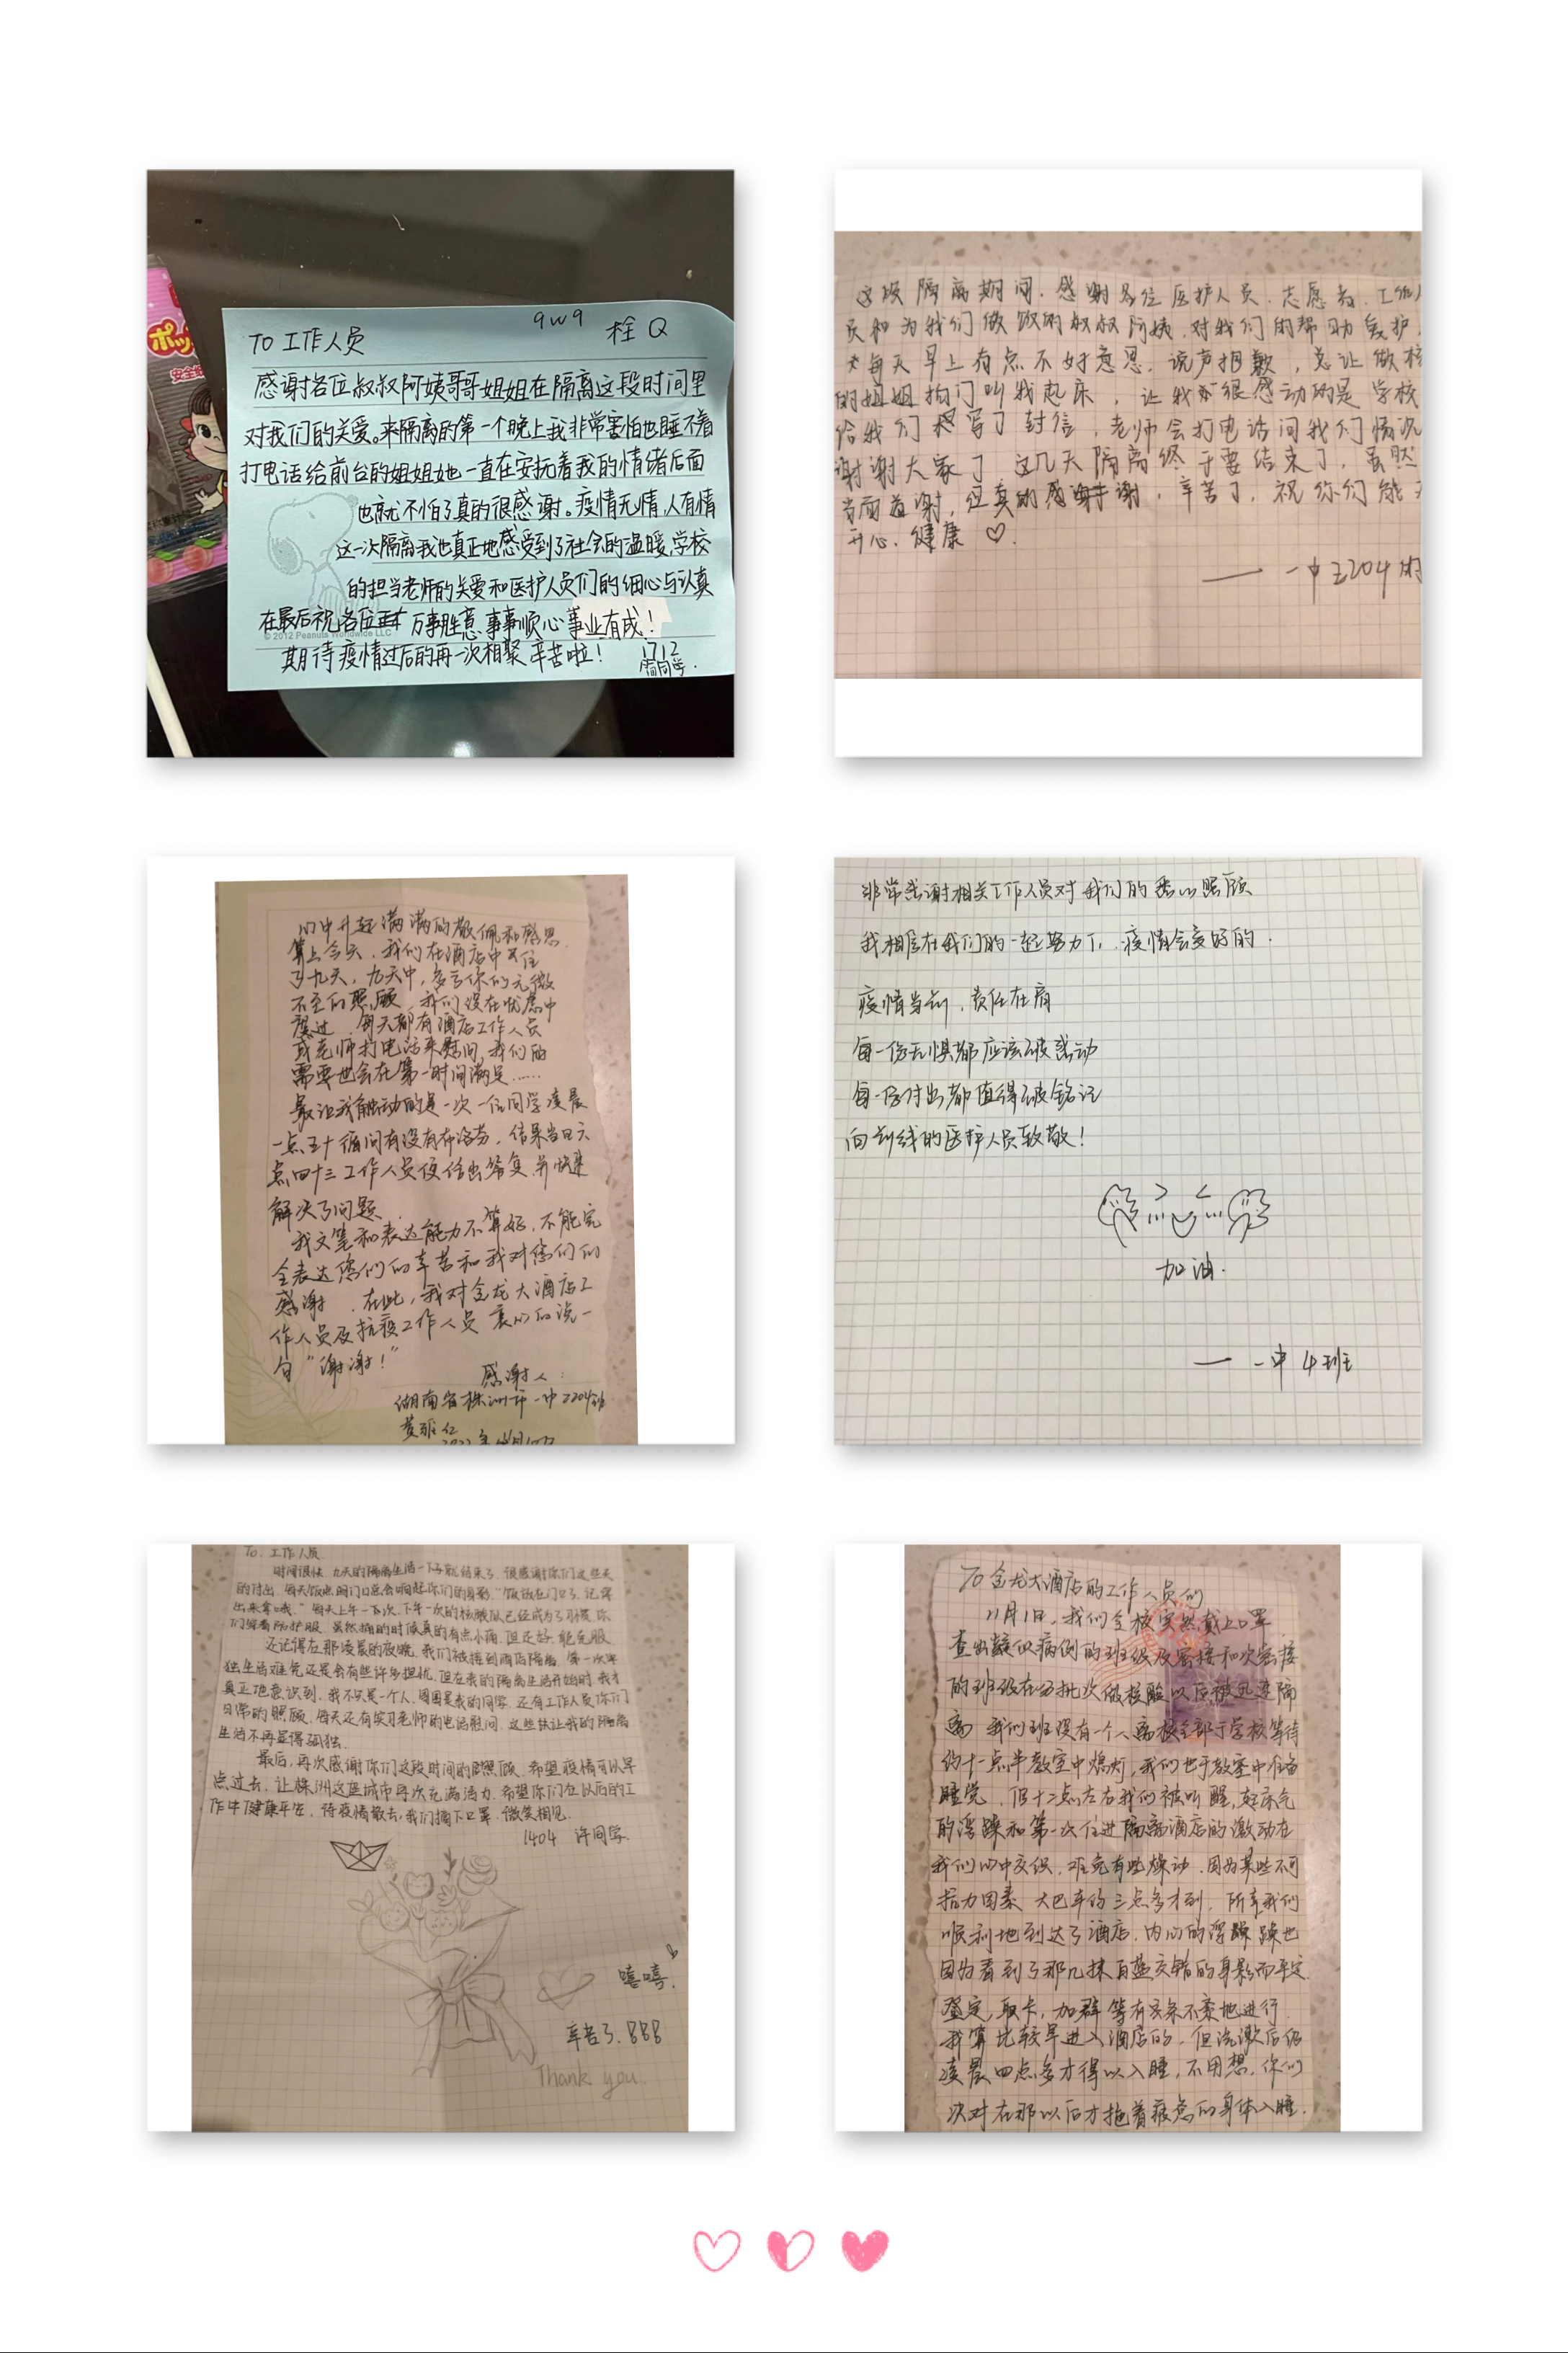 qwq 栓Q
TO 工作人员
感谢各位叔叔阿姨哥哥姐姐在隔离这段时间里
对我们的关爱。来隔离的第一个晚上我非常害怕也睡不着
打电话给前台的姐姐她一直在安抚着我的情绪后面
也就不怕了真的很感谢。疫情无情,人有情
这一次隔离我也真正地感受到了社会的温暖,学校
的担当老师的关爱和医护人员们的细心与认真
在最后祝各位 万事胜意 事事顺心 事业有成!
© 2012 Peanuts Worldwide LLC
期待疫情过后的再一次相聚 辛苦啦!
1712
同学.
ポッ
安全
这段隔离期间.感谢各位医护人员.志愿者.工作
员和为我们做饭的叔叔阿姨.对我们的帮助爱护.
每天早上有点不好意思.说声抱歉,总让做核
的姐姐拍门叫我起床,让我很感动的是学校
给我们写了封信,老师会打电话问我们情况
谢谢大家了 这几天隔离终于要结束了,虽然
当面道谢,但真的感谢 辛苦了,祝你们能
开心.健康 ♡.
—— 一中2204
心中升起满满的敬佩和感恩.
算上今天,我们在酒店中居住
了九天,九天中,多亏你们无微
不至的照顾,我们没在忧虑中
度过.每天都有酒店工作人员
或老师打电话来慰问,我们的
需要也会在第一时间满足……
最让我触动的是一次一位同学凌晨
一点五十循问有没有布洛芬,结果当日六
点四十三工作人员便给出答复并快速
解决了问题.
我文笔和表达能力不算好,不能完
全表达您们的辛苦和我对您们的
感谢.在此,我对金龙大酒店工
作人员及抗疫工作人员 衷心的说一
句“谢谢!”
感谢人:
湖南省株洲市一中2204班
非常感谢相关工作人员对我们的悉心照顾
我相信在我们的一起努力下,疫情会变好的.
疫情当前,责任在肩
每一份无惧都应该被感动
每一份付出都值得被铭记
向前线的医护人员致敬!
加油.
—— 一中4班
To:工作人员
时间很快,九天的隔离生活一下子就结束了.很感谢你们这些天
的付出.每天饭点的门口总会响起你们的身影.“饭放在门口了,记得
出来拿哦.”每天上午一次、下午一次的核酸队已经成为了习惯.你
们穿着防护服.虽然捅的时候真的有点小痛.但还好.能克服
还记得在那凌晨的夜晚.我们被接到酒店隔离.第一次单
独生活难免还是会有些许多担忧.但在我的隔离生活开始时.我才
真正地意识到.我不只是一个人.周围是我的同学.还有工作人员你们
日常的照顾.每天还有实习老师的电话慰问.这些性让我的隔离
生活不再显得孤独.
最后,再次感谢你们这段时间的照顾.希望疫情可以早
点过去.让株洲这座城市再次充满活力.希望你们在以后的工
作中健康平安.待疫情散去,我们摘下口罩.微笑相见.
1404 许同学.
嘻嘻.
辛苦了.888
Thank you.
To 金龙大酒店的工作人员们
11月1日,我们全校突然戴上口罩
查出疑似病例的班级及密接和次密接
的班级在分批次做核酸以后被迅速隔
离 我们班没有一个人离校全部于学校等待
约十一点半教室中熄灯,我们也于教室中准备
睡觉.但十二点左右我们被叫醒,起床气
的浮躁和第一次住进隔离酒店的激动在
我们心中交织.难免有些燥动.因为某些不可
抗力因素 大巴车约三点多才到.所幸我们
顺利地到达了酒店,内心的浮躁也
因为看到了那几抹白蓝交错的身影而平定.
鉴定,取卡,加群等有条不紊地进行
我算比较早进入酒店的,但洗漱后仍
凌晨四点多才得以入睡,不用想,你们
决对在那以后才拖着疲惫的身体入睡.